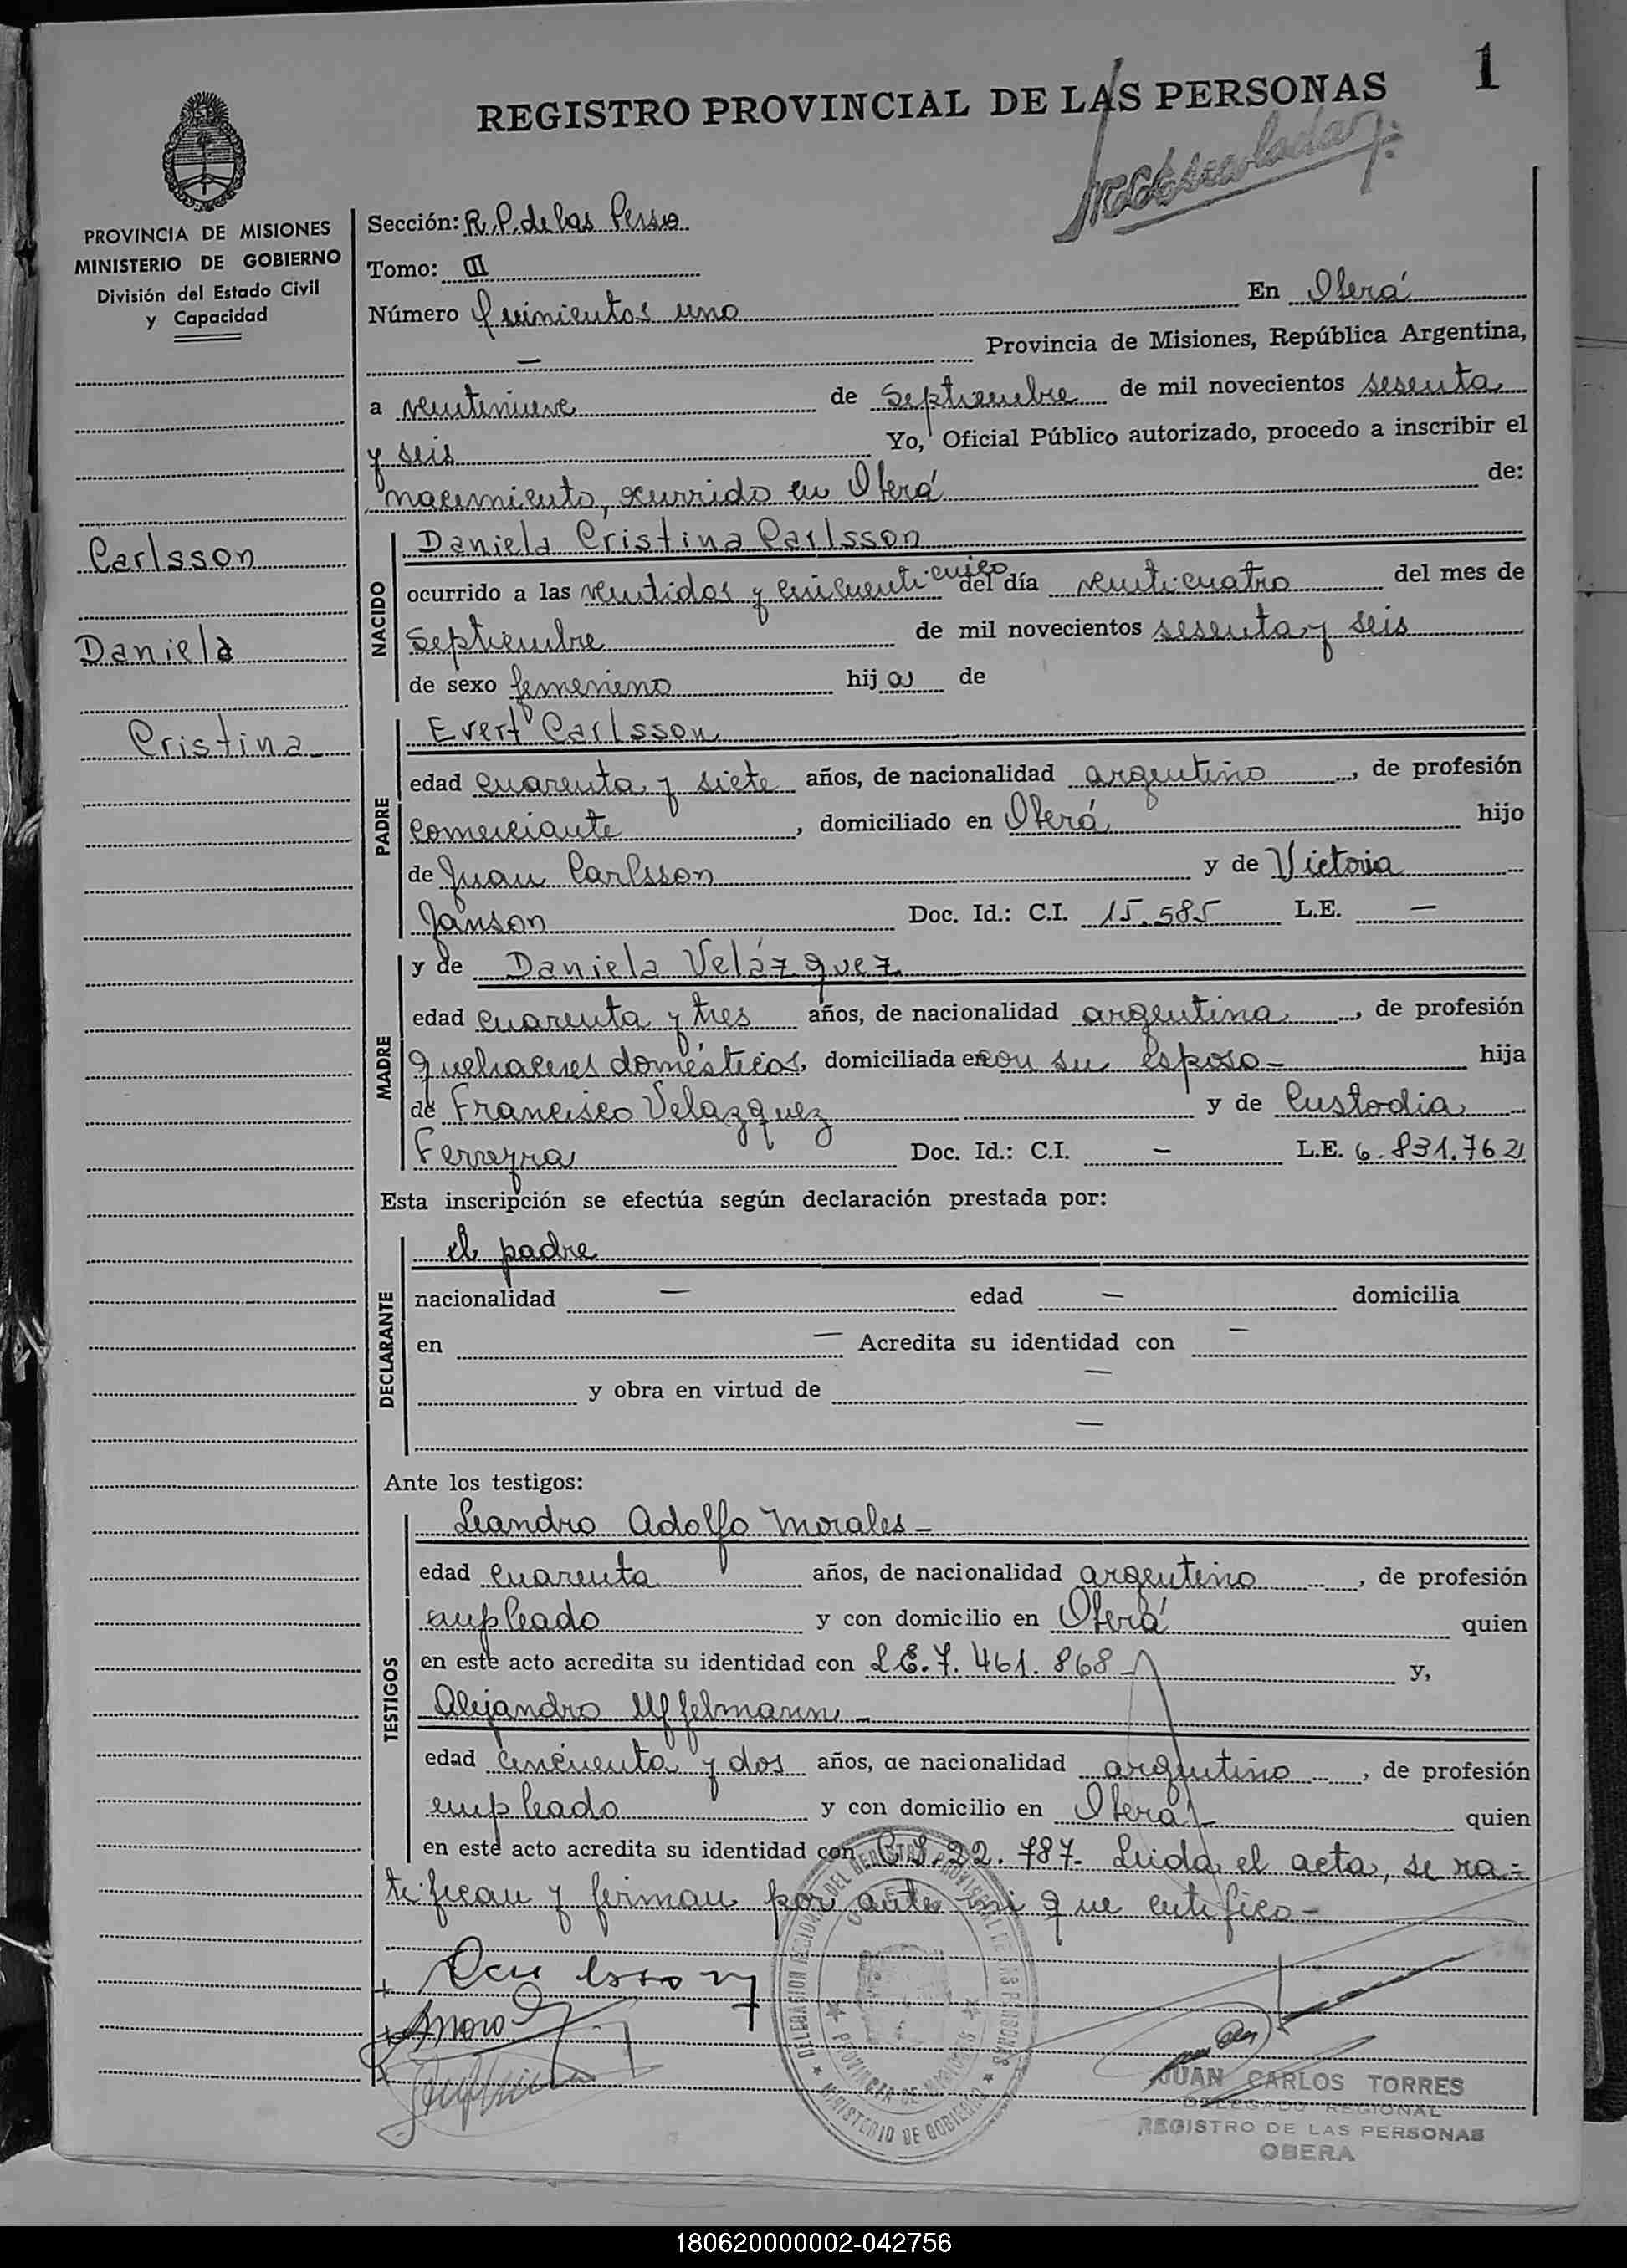 1
REGISTRO PROVINCIAL DE LAS PERSONAS
PROVINCIA DE MISIONES
MINISTERIO DE GOBIERNO
División del Estado Civil
y Capacidad
Carlsson
Daniela
Cristina
Sección: R.P. de las Perso
Tomo: III
Número Quinientos uno En Oberá
— Provincia de Misiones, República Argentina,
a veintinueve de Septiembre de mil novecientos sesenta
y seis Yo, Oficial Público autorizado, procedo a inscribir el
nacimiento, ocurrido en Oberá de:
NACIDO
Daniela Cristina Carlsson
ocurrido a las veintidos y cincuenticinco del día veinticuatro del mes de
Septiembre de mil novecientos sesenta y seis
de sexo femenino hij a de
PADRE
Evert Carlsson
edad cuarenta y siete años, de nacionalidad argentino, de profesión
comerciante, domiciliado en Oberá hijo
de Juan Carlsson y de Victoria
Janson Doc. Id.: C.I. 15.585 L.E. —
MADRE
y de Daniela Velázquez
edad cuarenta y tres años, de nacionalidad argentina, de profesión
quehaceres domésticos, domiciliada en con su esposo - hija
de Francisco Velazquez y de Custodia
Ferreyra Doc. Id.: C.I. — L.E. 6.831.762
Esta inscripción se efectúa según declaración prestada por:
DECLARANTE
el padre
nacionalidad — edad — domicilia
en — Acredita su identidad con —
y obra en virtud de —
—
Ante los testigos:
TESTIGOS
Leandro Adolfo Morales -
edad cuarenta años, de nacionalidad argentino, de profesión
empleado y con domicilio en Oberá quien
en este acto acredita su identidad con L.E. 7.461.868 - y,
Alejandro Uffelmann -
edad cincuenta y dos años, de nacionalidad argentino, de profesión
empleado y con domicilio en Oberá quien
en este acto acredita su identidad con C.I. 22.787- Leida el acta, se ra=
tifican y firman por ante mi que certifico -
Carlsson
DELEGACION REGIONAL DEL REGISTRO PROVINCIAL DE LAS PERSONAS
PROVINCIA DE MISIONES
MINISTERIO DE GOBIERNO
JUAN CARLOS TORRES
DELEGADO REGIONAL
REGISTRO DE LAS PERSONAS
OBERA
180620000002-042756